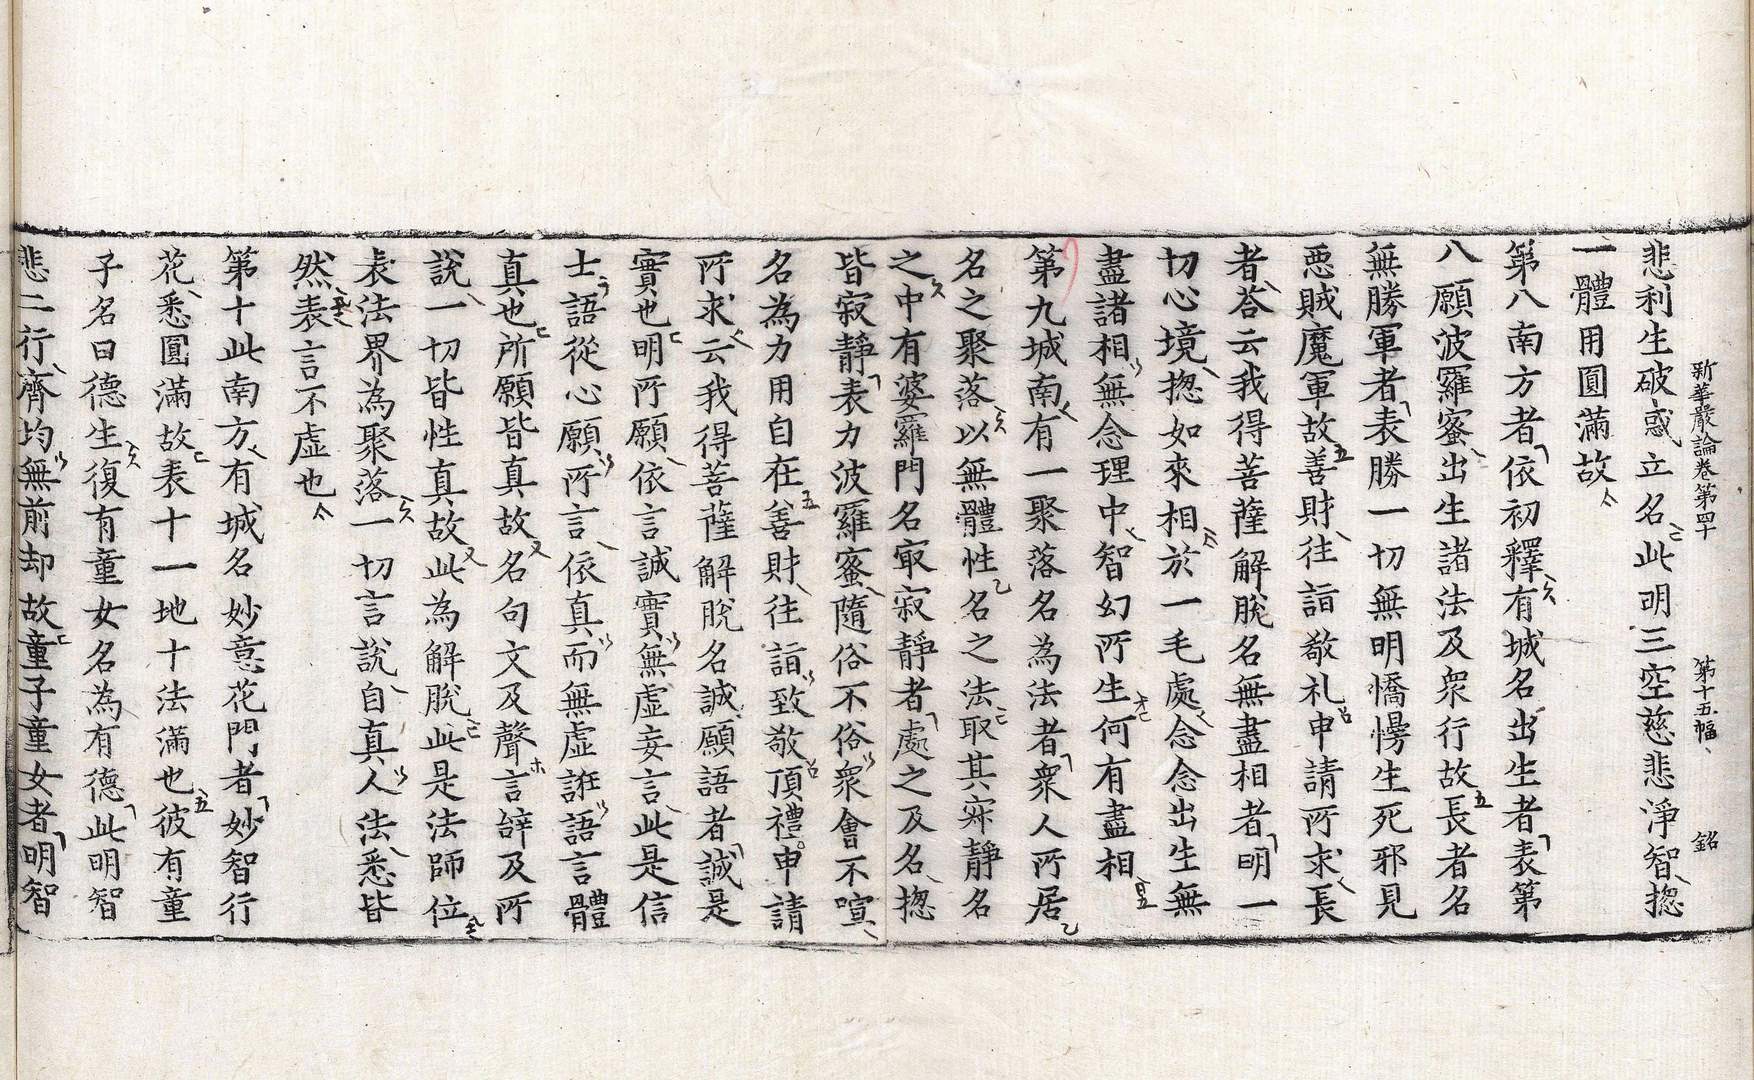 新華嚴論卷第四十 第十五幅 銘
悲利生破惑立名此明三空慈悲淨智揔
一體用圓滿故
第八南方者依初釋有城名出生者表第
八願波羅蜜出生諸法及衆行故長者名
無勝軍者表勝一切無明憍慢生死邪見
惡賊魔軍故善財往詣敬礼申請所求長
者荅云我得菩薩解脫名無盡相者明一
切心境揔如來相於一毛處念念出生無
盡諸相無念理中智幻所生何有盡相
第九城南有一聚落名為法者衆人所居
名之聚落以無體性名之法取其㝎靜名
之中有婆羅門名㝡寂靜者處之及名揔
皆寂靜表力波羅蜜隨俗不俗衆會不喧
名為力用自在善財往詣致敬頂禮申請
所求云我得菩薩解脫名誠願語者誠是
實也明所願依言誠實無虛妄言此是信
士語從心願所言依真而無虛誑語言體
真也所願皆真故名句文及聲言辝及所
說一切皆性真故此為解脫此是法師位
表法界為聚落一切言說自真人法悉皆
然表言不虛也
第十此南方有城名妙意花門者妙智行
花悉圓滿故表十一地十法滿也彼有童
子名曰德生復有童女名為有德此明智
悲二行齊均無前却故童子童女者明智